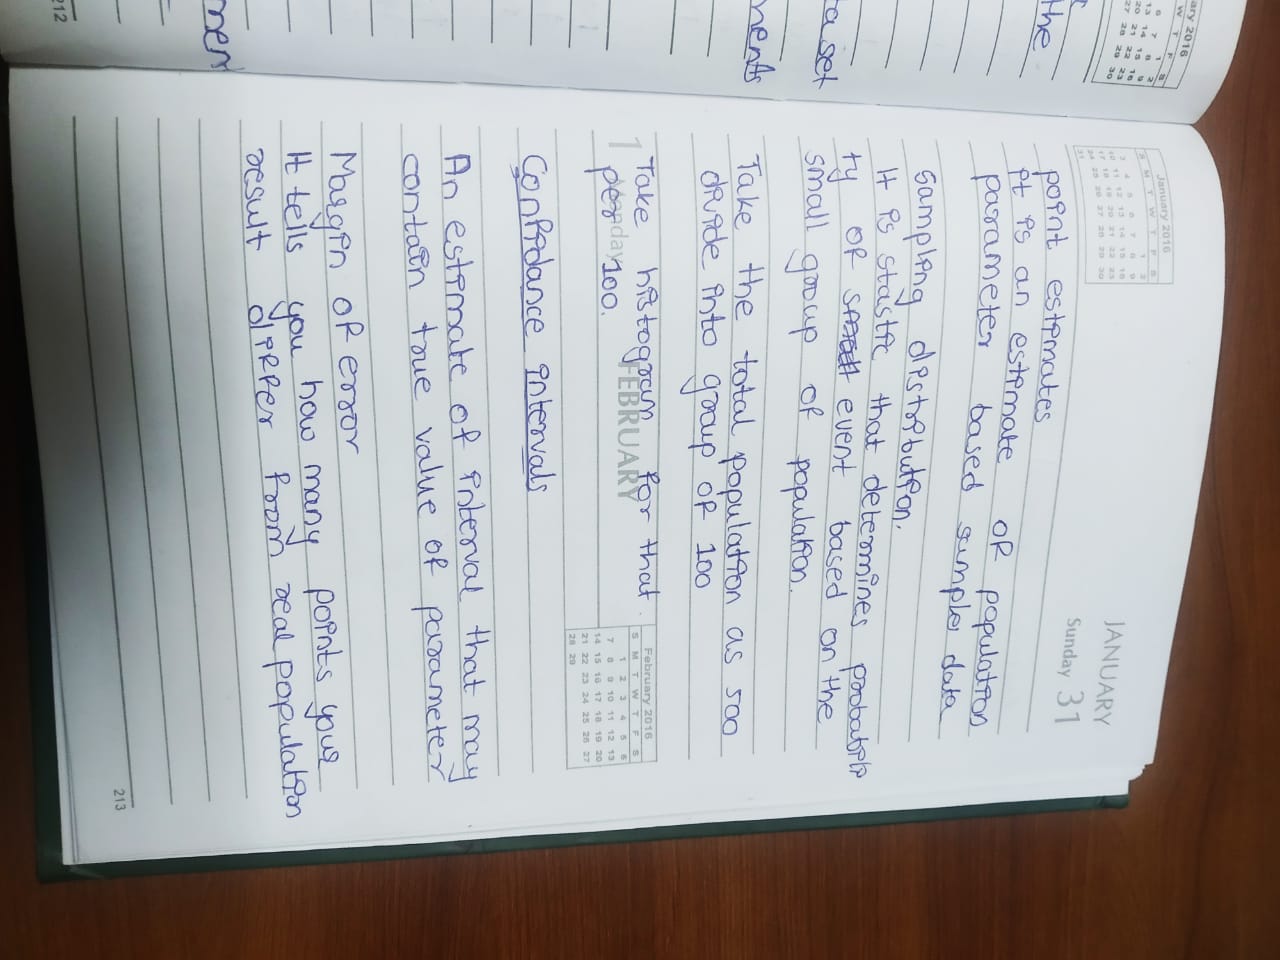 ary 2016
W T F S
1 2
6 7 8 9
13 14 15 16
20 21 22 23
27 28 29 30
the
ta set
ments
ment
212
January 2016
S M T W T F S
1 2
3 4 5 6 7 8 9
10 11 12 13 14 15 16
17 18 19 20 21 22 23
24 25 26 27 28 29 30
31
JANUARY
Sunday 31
point estimates
it is an estimate of population
parameter based sample data
Sampling distribution.
It is stastic that determines probabili
ty of event based on the
small group of population.
Take the total population as 500
divide into group of 100
Take histogram for that
1 Monday FEBRUARY
per 100.
February 2016
S M T W T F S
1 2 3 4 5 6
7 8 9 10 11 12 13
14 15 16 17 18 19 20
21 22 23 24 25 26 27
28 29
Confidance intervals
An estimate of interval that may
contain true value of parameter
Margin of error
It tells you how many points your
result differ from real population
213